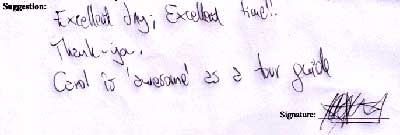 Suggestion:
Excellent day; Excellent time!!
Thank-you.
Carol is 'awesome' as a tour guide
Signature: